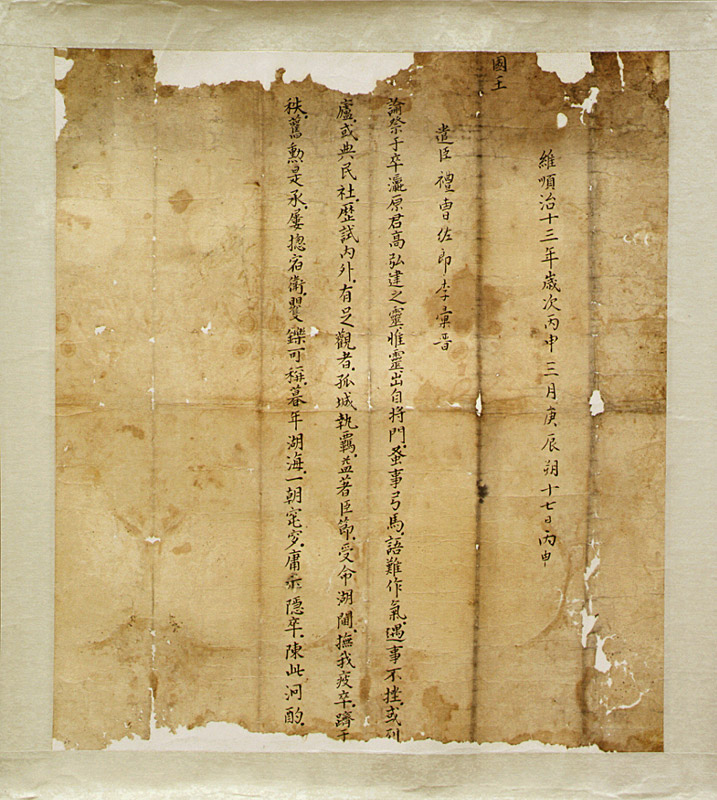 維順治十三年歲次丙申三月庚辰朔十七日丙申
國王
遣臣禮曹佐郎李彙晋
諭祭于卒瀛原君高弘建之靈惟靈出自將門蚤事弓馬語難作氣遇事不挫或列
廬或典民社歷試內外有足觀者孤城執羈益著臣節受命湖閫撫我疲卒躋于
秩舊勳是承屢摠宿衛矍鑠可稱暮年湖海一朝窀穸庸示隱卒陳此泂酌